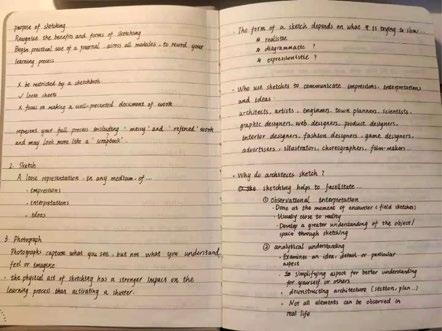 purpose of sketching
Recognise the benefits and forms of sketching
Begin practical use of a journal across all modules - to record your
learning process
x be restricted by a sketchbook
✓ loose sheets
x focus on making a well-presented document of work
represent your full process including 'messy' and 'refined' work
and may look more like a 'scrapbook'.
2. Sketch
A loose representation - in any medium - of ...
- impressions
- interpretations
- ideas
3. Photograph
Photographs capture what you see, but not what you understand,
feel or imagine
- the physical act of sketching has a stronger impact on the
learning process than activating a shutter.
- The form of a sketch depends on what it is trying to show...
* realistic
* diagrammatic ?
* expressionistic ?
- Who use sketches to communicate impressions, interpretations
and ideas
architects, artists, engineers, town planners, scientists,
graphic designers, web designers, product designers,
interior designers, fashion designers, game designers,
advertisers, illustrators, choreographers, film-makers...
- Why do architects sketch ?
sketching helps to facilitate...
① Observational interpretation
- Done at the moment of encounter (field sketches)
- Usually close to reality
- Develop a greater understanding of the object/
space through sketching
② analytical understanding
- Examines an idea, detail or particular
aspect
simplifying aspect for better understanding
for yourself or others
- deconstructing architecture (section, plan...)
- Not all elements can be observed in
real life